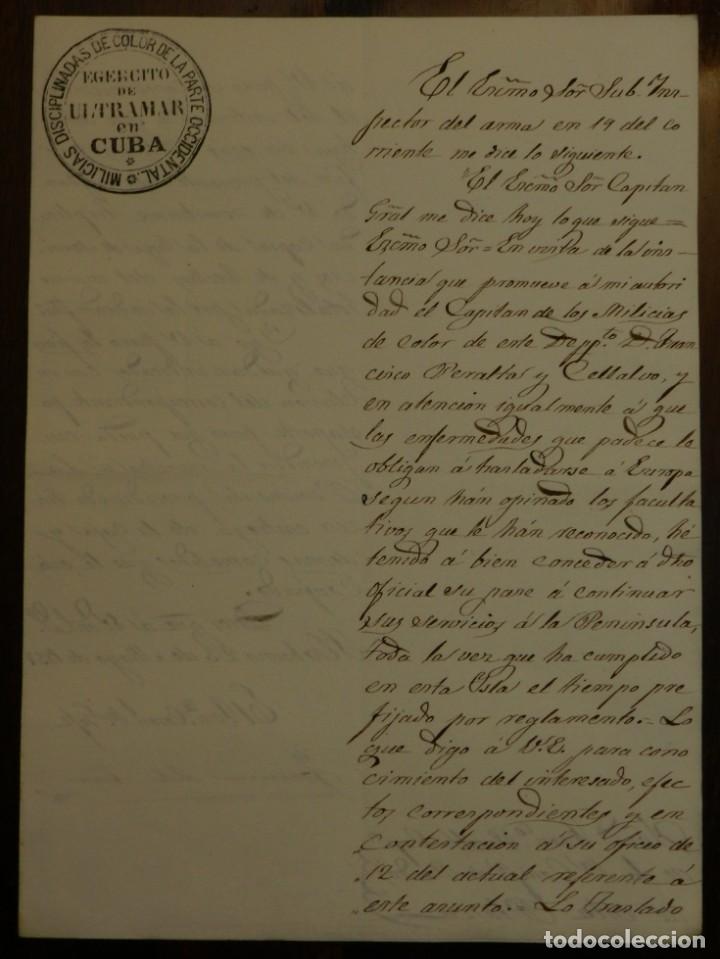 MILICIAS DISCIPLINADAS DE COLOR DE LA PARTE OCCIDENTAL.
EGERCITO
DE
ULTRAMAR
en
CUBA
El Exc̃mo Sor̃ Sub. Ins-
pector del arma en 19 del co
rriente me dice lo siguiente.
El Exc̃mo Sor̃ Capitan
Gral̃ me dice hoy lo que sigue=
Exc̃mo Sor̃ = En vista de la ins-
tancia que promueve á mi autori
dad el Capitan de las Milicias
de color de este Depp.to D. Fran
cisco Peralta y
y
en atencion igualmente á que
las enfermedades que padece le
obligan á trasladarse á Europa
segun hán opinado los faculta
tivos que le hán reconocido, hé
tenido á bien conceder á dho
oficial su pase á continuar
sus servicios á la Peninsula,
toda la vez que ha cumplido
en esta Ysla el tiempo pre
fijado por reglamento.= Lo
que digo á V.E. para cono
cimiento del interesado, efec
tos correspondientes y en
contestacion á su oficio de
12 del actual referente á
este asunto.= Lo traslado
todocoleccion.net